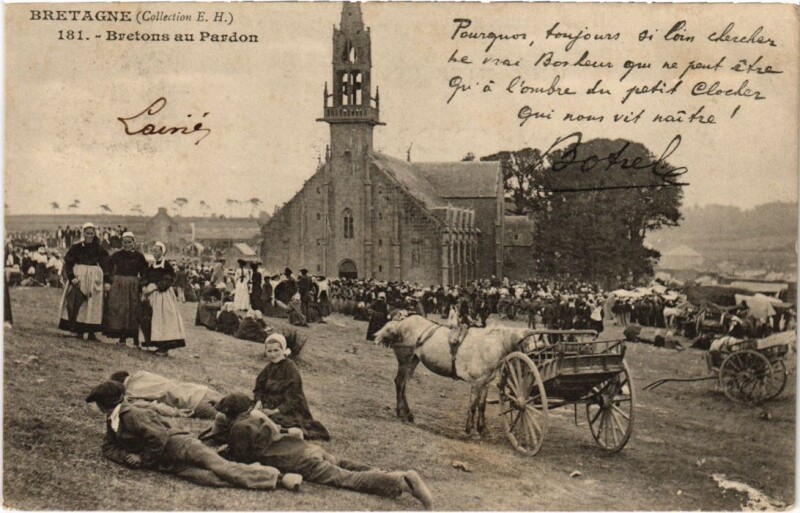 BRETAGNE (Collection E. H.)
181. - Bretons au Pardon
Pourquoi, toujours si loin chercher
Le vrai Bonheur qui ne peut être
Qu'à l'ombre du petit Clocher
Qui nous vit naître !
Botrel
Lainé